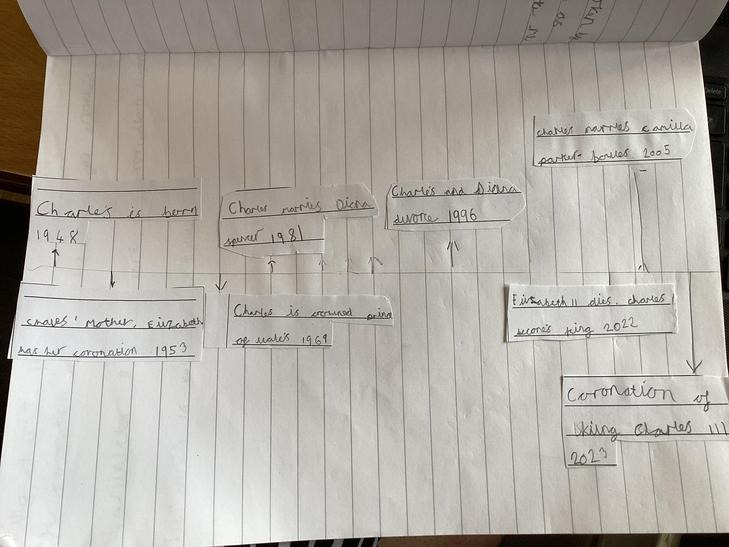 Charles is born
1948
Charles marries Diana
spencer 1981
Charles and Diana
divorce 1996
charles marries camilla
parker-bowles 2005
charles' Mother, Elizabeth
has her coronation 1953
Charles is crowned prince
of wales 1969
Elizabeth II dies. charles
becomes king 2022
Coronation of
King Charles III
2023
Delete